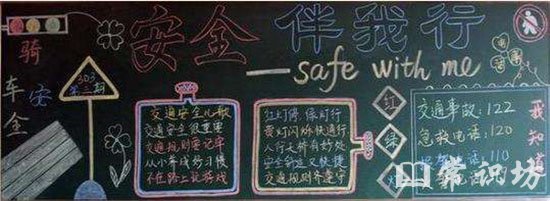 安全伴我行
—safe with me
骑车安全
303
第三期
交通安全儿歌
交通安全很重要
交通规则要记牢
从小养成好习惯
不在路上玩游戏
红灯停 绿灯行
黄灯闪烁快通行
人行天桥有好处
安全 又快捷
交通规则 遵守
红
绿
灯
交通事故:122
急救电话:120
电话:110
我知道
常识坊